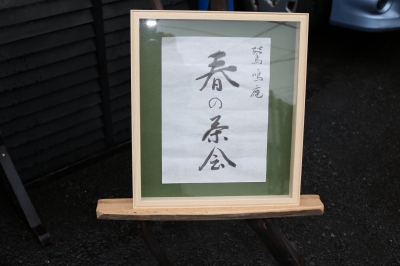 鶯鳴庵
春の茶会